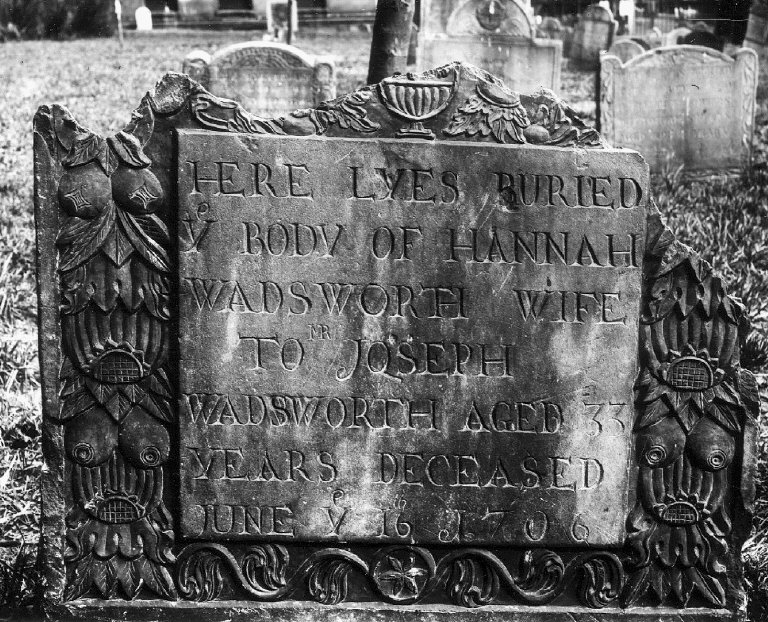 HERE LYES BURIED
Yᵉ BODY OF HANNAH
WADSWORTH WIFE
TO Mᴿ JOSEPH
WADSWORTH AGED 33
YEARS DECEASED
JUNE Yᵉ 16ᵗʰ 1706